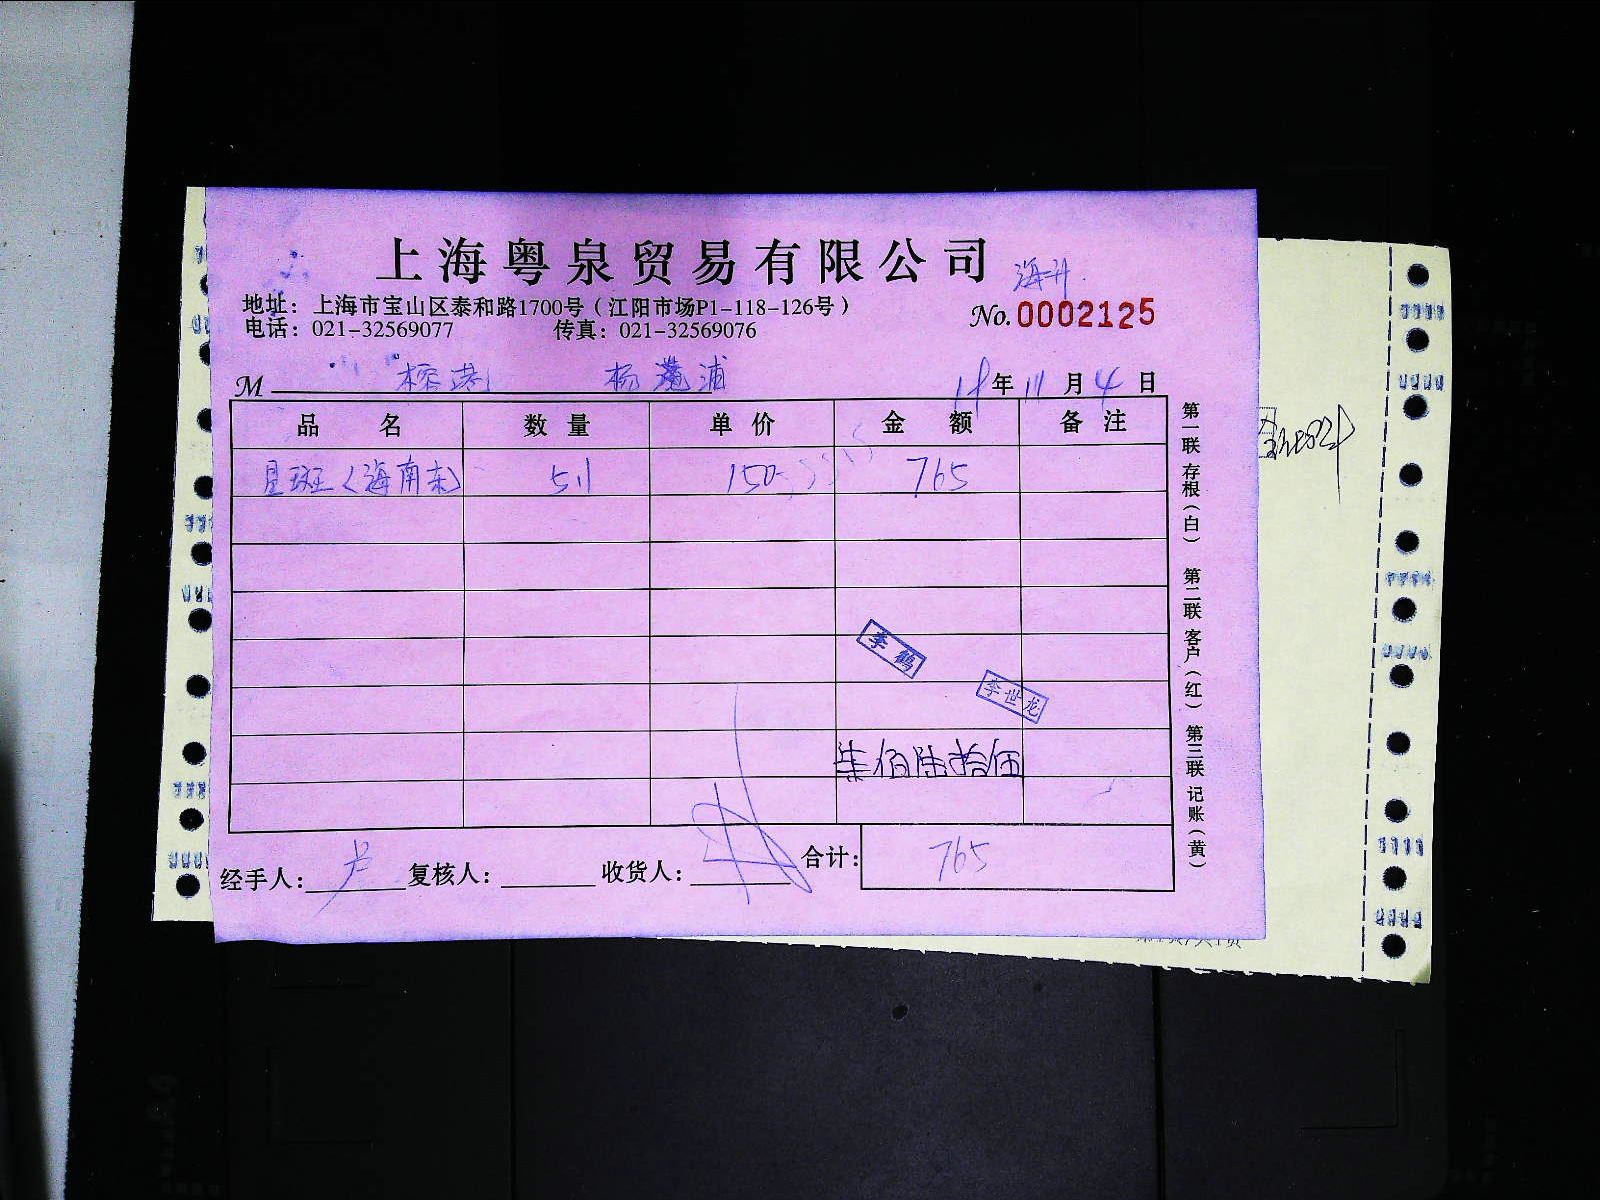 上海粤泉贸易有限公司
海升
地址：上海市宝山区泰和路1700号（江阳市场P1-118-126号）
No.0002125
电话：021-32569077 传真：021-32569076
M 榕港 杨 浦
18年11月4日
品名 数量 单价 金额 备注
星斑（海南东） 5.1 150- 765
李鹤
李世龙
柒佰陆拾伍
经手人：卢 复核人： 收货人： 合计：765
第一联 存根（白） 第二联 客户（红） 第三联 记账（黄）